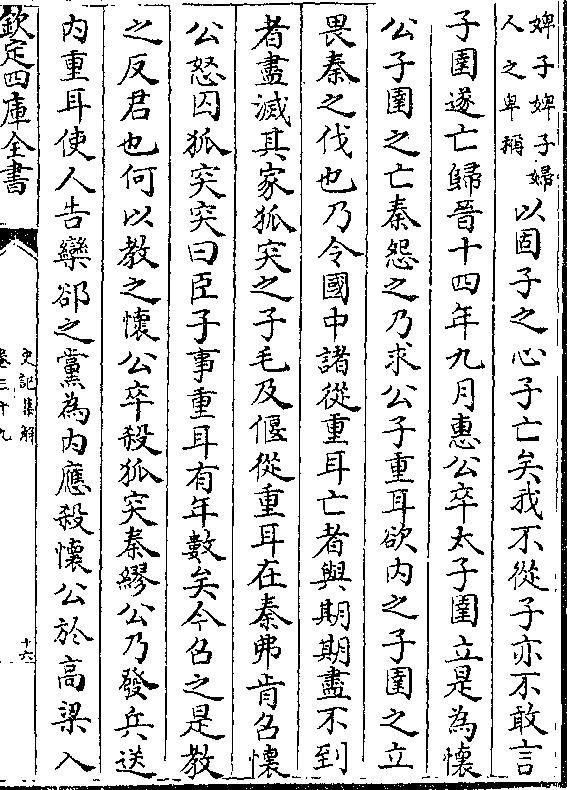 婢子婢子婦
人之卑稱
以固子之心子亡矣我不從子亦不敢言
子圉遂亡歸晉十四年九月惠公卒太子圉立是為懷
公子圉之亡秦怨之乃求公子重耳欲内之子圉之立
畏秦之伐也乃令國中諸從重耳亡者與期期盡不到
者盡滅其家狐突之子毛及偃從重耳在秦弗肯召懷
公怒囚狐突突曰臣子事重耳有年數矣今召之是教
之反君也何以教之懷公卒殺狐突秦繆公乃發兵送
内重耳使人告欒郤之黨為内應殺懷公於高梁入
欽定四庫全書
史記集解
卷三十九
十六